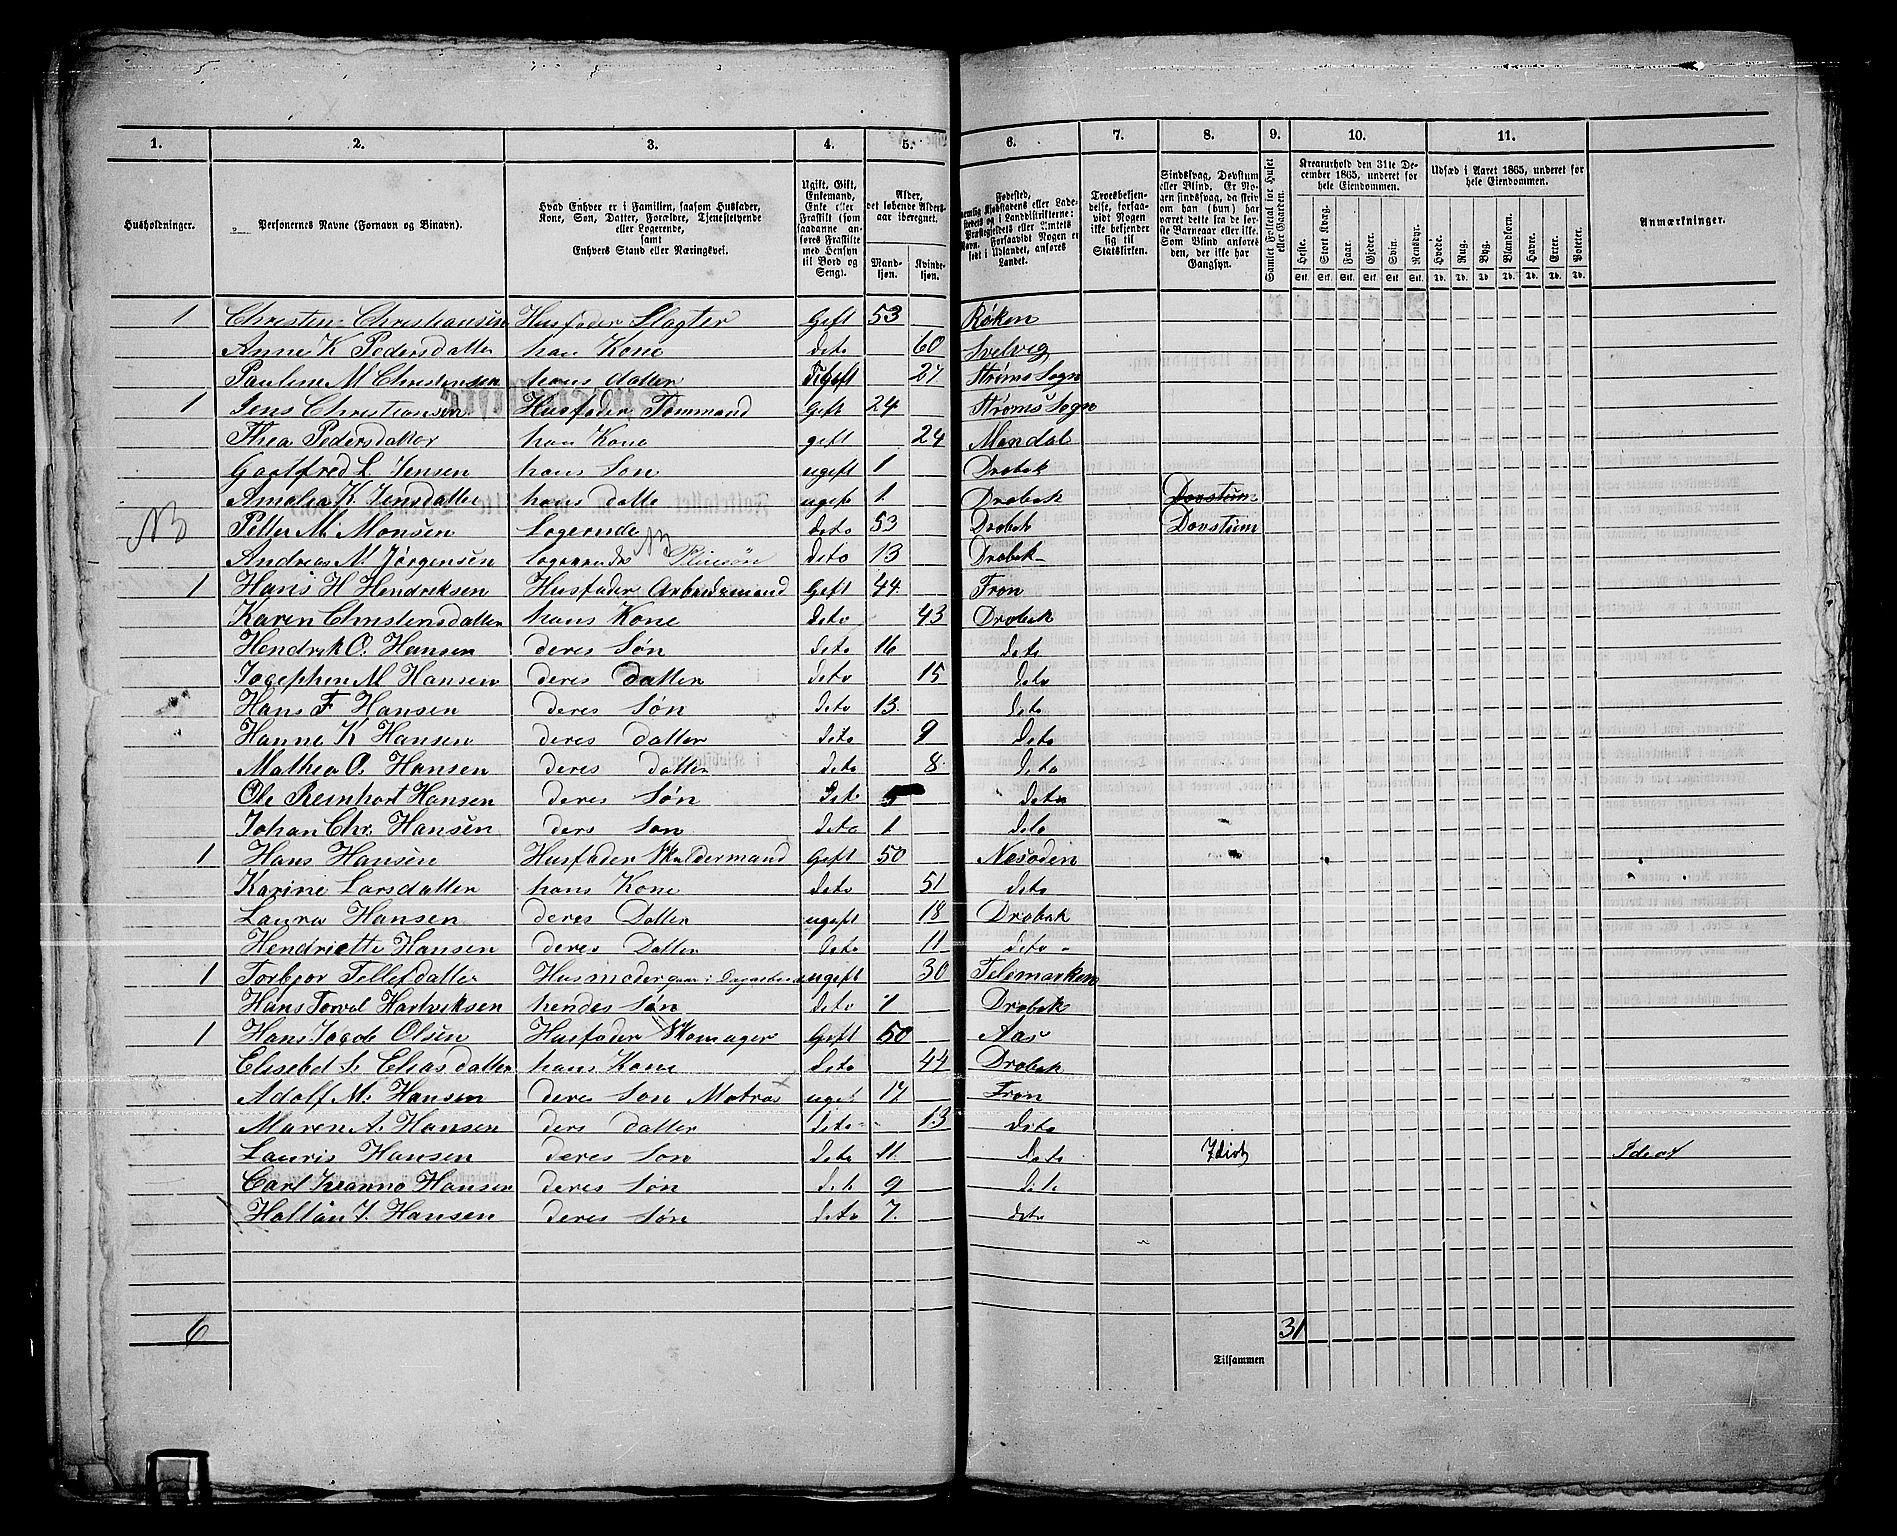 1. 2. 3. 4. 5. 6. 7. 8. 9. 10. 11.
Husholdninger. Personernes Navne (Fornavn og Binavn). Hvad Enhver er i Familien, saasom Husfader, Kone, Søn, Datter, Forældre, Tjenestetyende eller Logerende, samt Enhvers Stand eller Næringsvei. Ugift, Gift, Enkemand, Enke eller Fraskilt (som saadanne anføres Fraskilte med Hensyn til Bord og Seng). Alder, det løbende Aldersaar iberegnet. Mandkjøn. Kvindekjøn. Fødested, Troesbekjendelse, forsaavidt Nogen ikke bekjender sig til Statskirken. Sindssvag, Døvstum eller Blind. Samlet Folketal for Huset eller Gaarden. Kreaturhold den 31te December 1865, underet for hele Eiendommen. Udsæd i Aaret 1865, underet for hele Eiendommen. Anmærkninger.
Heste. Stort Kvæg. Faar. Gjeder. Svin. Rensdyr. Hvede. Rug. Byg. Blandkorn. Havre. Erter. Poteter.
1 Christen Christiansen Husfader Slagter Gift 53 Røken
Anne K Pedersdatter han Kone deto 60 Svelvig
Pauline M Christensen hans datter 27 Strøms Sogn
1 Jens Christiansen Husfader Tømmand Gift 24 Strøms Sogn
Thea Pedersdatter han Kone gift 24 Mandal
Gottfred L Jensen hans Søn ugift 1 Drøbak
Amalia K Jensdatter hans datte ugift 1 Drøbak Døvstum
NB Petter M. Monsen Logernde deto 53 Drøbak Døvstum
Andreas M. Jørgensen logerende NB Pleiesøn deto 13 Drøbak
1 Hans H Hendriksen Husfader Arbeidsmand Gift 44 Fron
Karen Christensdatter hans Kone deto 43 Drøbak
Hendrik O. Hansen deres Søn deto 16 deto
Josephine M Hansen deres datter deto 15 deto
Hans F Hansen deres Søn deto 13 deto
Hanne K Hansen deres datter deto 9 deto
Mathea O. Hansen deres datter deto 8 deto
Ole Reinhart Hansen deres Søn deto 5 deto
Johan Chr. Hansen ders Søn deto 1 deto
1 Hans Hansen Husfader Skuldermand Gift 50 Næsodden
Karine Larsdatter hans Kone deto 51 deto
Laura Hansen deres Datter ugift 18 Drøbak
Hendriette Hansen deres Datter deto 11 deto
1 Torbjor Tellefdatter Husmoder gaar i Dagarbeide ugift 30 Telemarken
Hans Torval Hartviksen hendes Søn deto 1 Drøbak
1 Hans Jacob Olsen Husfader Skomager Gift 50 Aas
Elisebet S. Eliasdatter hans Kone deto 44 Drøbak
Adolf M. Hansen deres Søn Matros uget 17 Fron
Maren A. Hansen ders datter deto 13 deto
Lauris Hansen deres Søn deto 11 deto Idiot Idiot
Carl Hansen deres Søn deto 9 deto
Halfan J. Hansen deres Søn deto 7 deto
6 31
Tilsammen